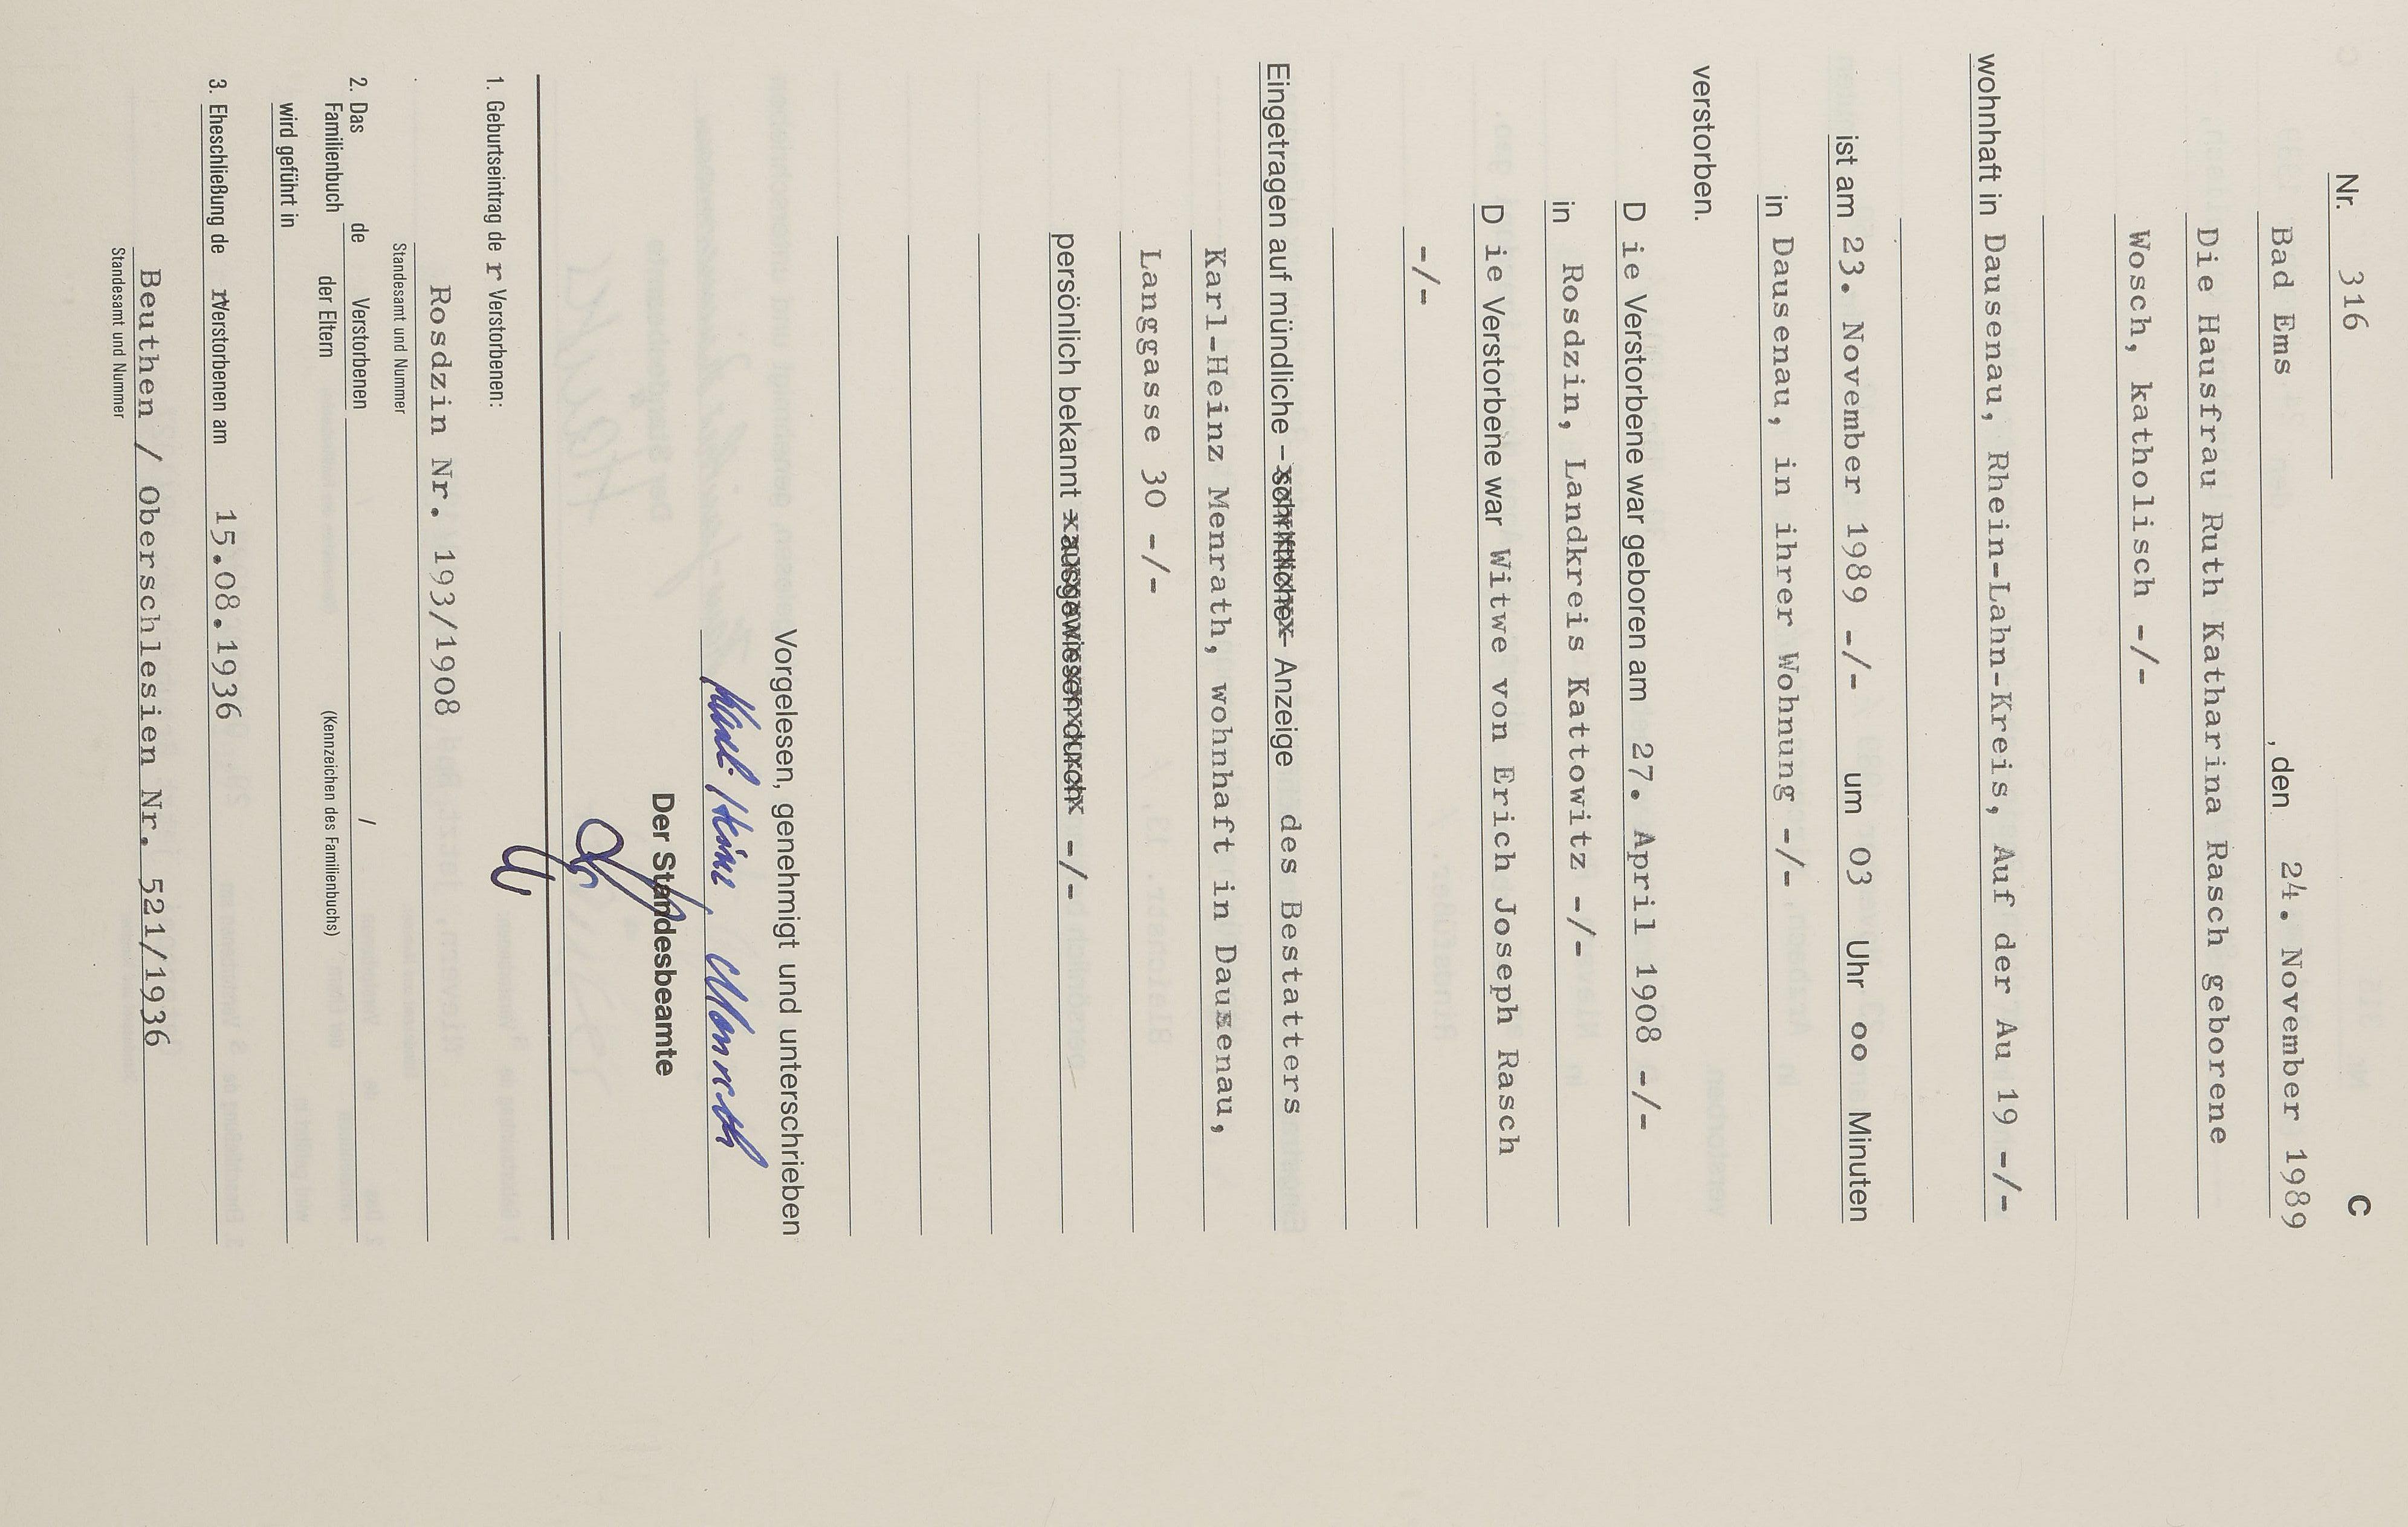 C
Nr. 316
Bad Ems , den 24. November 1989
Die Hausfrau Ruth Katharina Rasch geborene
Wosch, katholisch -/-
wohnhaft in Dausenau, Rhein-Lahn-Kreis, Auf der Au 19 -/-
ist am 23. November 1989 -/- um 03 Uhr oo Minuten
in Dausenau, in ihrer Wohnung -/-
verstorben.
D ie Verstorbene war geboren am 27. April 1908 -/-
in Rosdzin, Landkreis Kattowitz -/-
D ie Verstorbene war Witwe von Erich Joseph Rasch
-/-
Eingetragen auf mündliche - schriftliche - Anzeige des Bestatters
Karl-Heinz Menrath, wohnhaft in Dausenau,
Langgasse 30 -/-
persönlich bekannt - ausgewiesen durch -/-
Vorgelesen, genehmigt und unterschrieben
Karl-Heinz Menrath
Der Standesbeamte
1. Geburtseintrag de r Verstorbenen:
Rosdzin Nr. 193/1908
Standesamt und Nummer
2. Das Familienbuch de Verstorbenen /
der Eltern (Kennzeichen des Familienbuchs)
wird geführt in
3. Eheschließung de r Verstorbenen am 15.08.1936
Beuthen / Oberschlesien Nr. 521/1936
Standesamt und Nummer